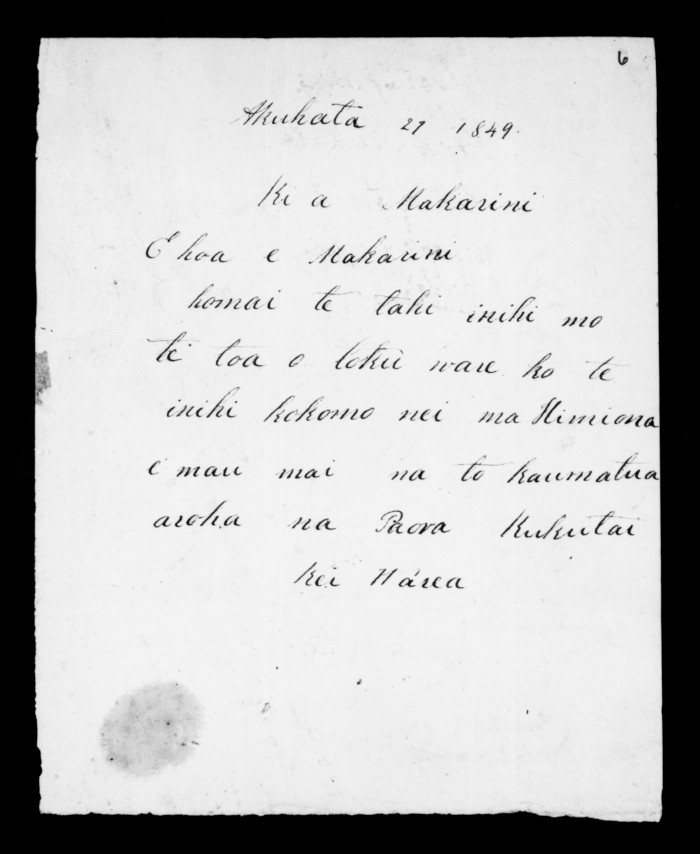 6
Akuhata 27 1849.
Ki a Makarini
E hoa e Makarini
homai te tahi inihi mo
te toa o tokü ware ko te
inihi kokomo nei ma Himiona
e mau mai na to kaumatua
aroha na Paora Kukutai
kei Hárea